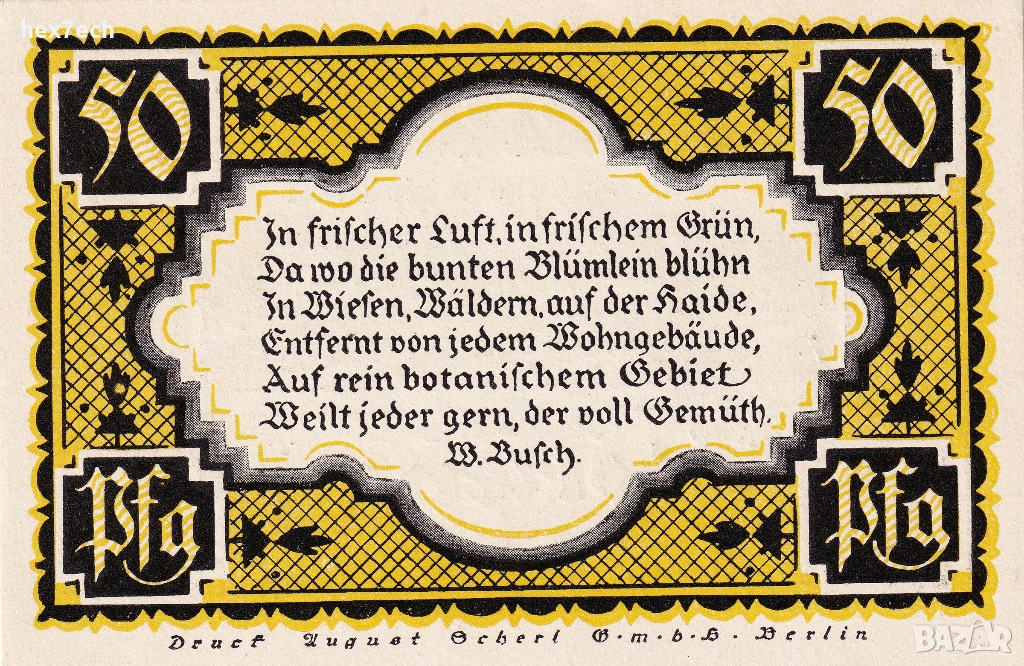 hex7ech
50
50
In frischer Luft, in frischem Grün,
Da wo die bunten Blümlein blühn
In Wiesen, Wäldern, auf der Haide,
Entfernt von jedem Wohngebäude,
Auf rein botanischem Gebiet
Weilt jeder gern, der voll Gemüth.
W. Busch.
Pfg
Pfg
Druck August Scherl G.m.b.H. Berlin
BAZAR